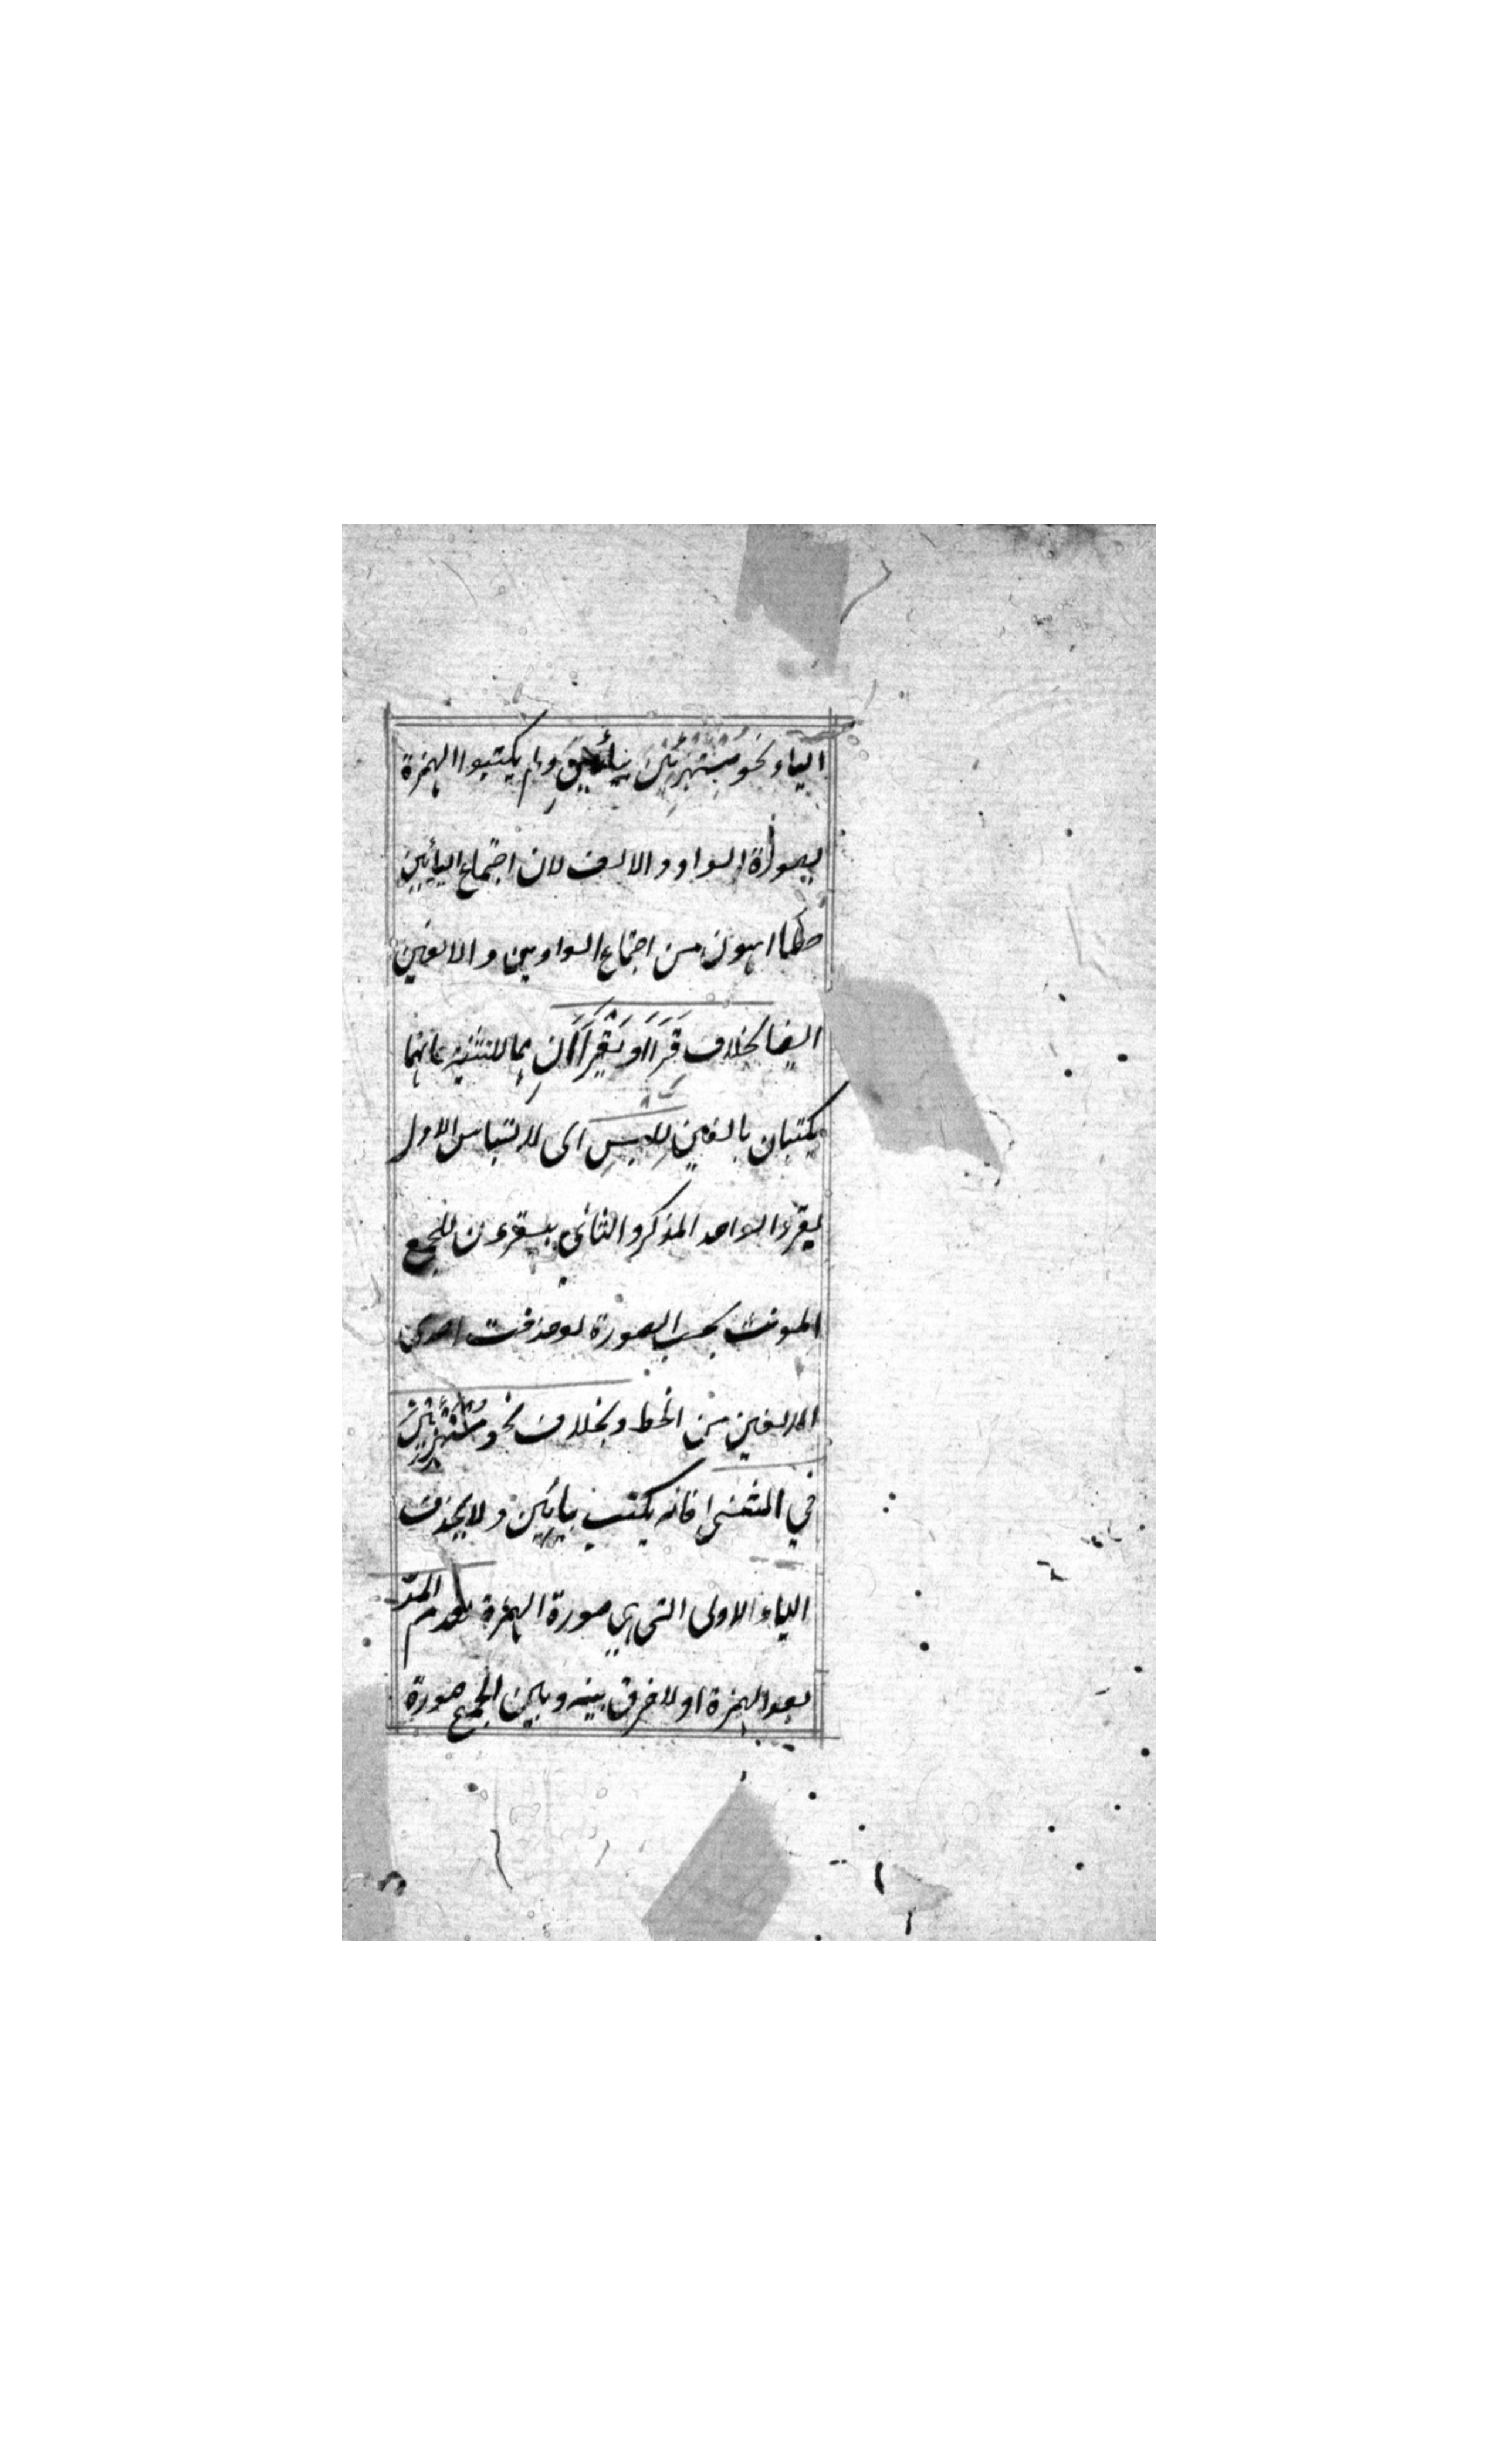 الياء نحو مُسْتَهْزِئِيْنَ بيائين ولم يكتبوا الهمزة
بصورة الواو والالف لان اجتماع اليائين
خطا اهون من اجتماع الواوين والالفين
ايضا بخلاف قَرَاَا وَيَقْرَاَانِ مما للتثنيه فانهما
يكتبان بالفين لِلَبسِ اى لالتباس الاول
بقرء الواحد المذكر والثاني بيقرءن للجمع
المونث بحسب الصورة لو حذفت احدى
الالفين من الخط وبخلاف نحو مُسْتَهْزِئَيْنِ
في المثنى فانه يكتب بيائين ولا يحذف
الياء الاولى التى هي صورة الهمزة لعدم المدّ
بعد الهمزة او للفرق بينه وبين الجمع صورة